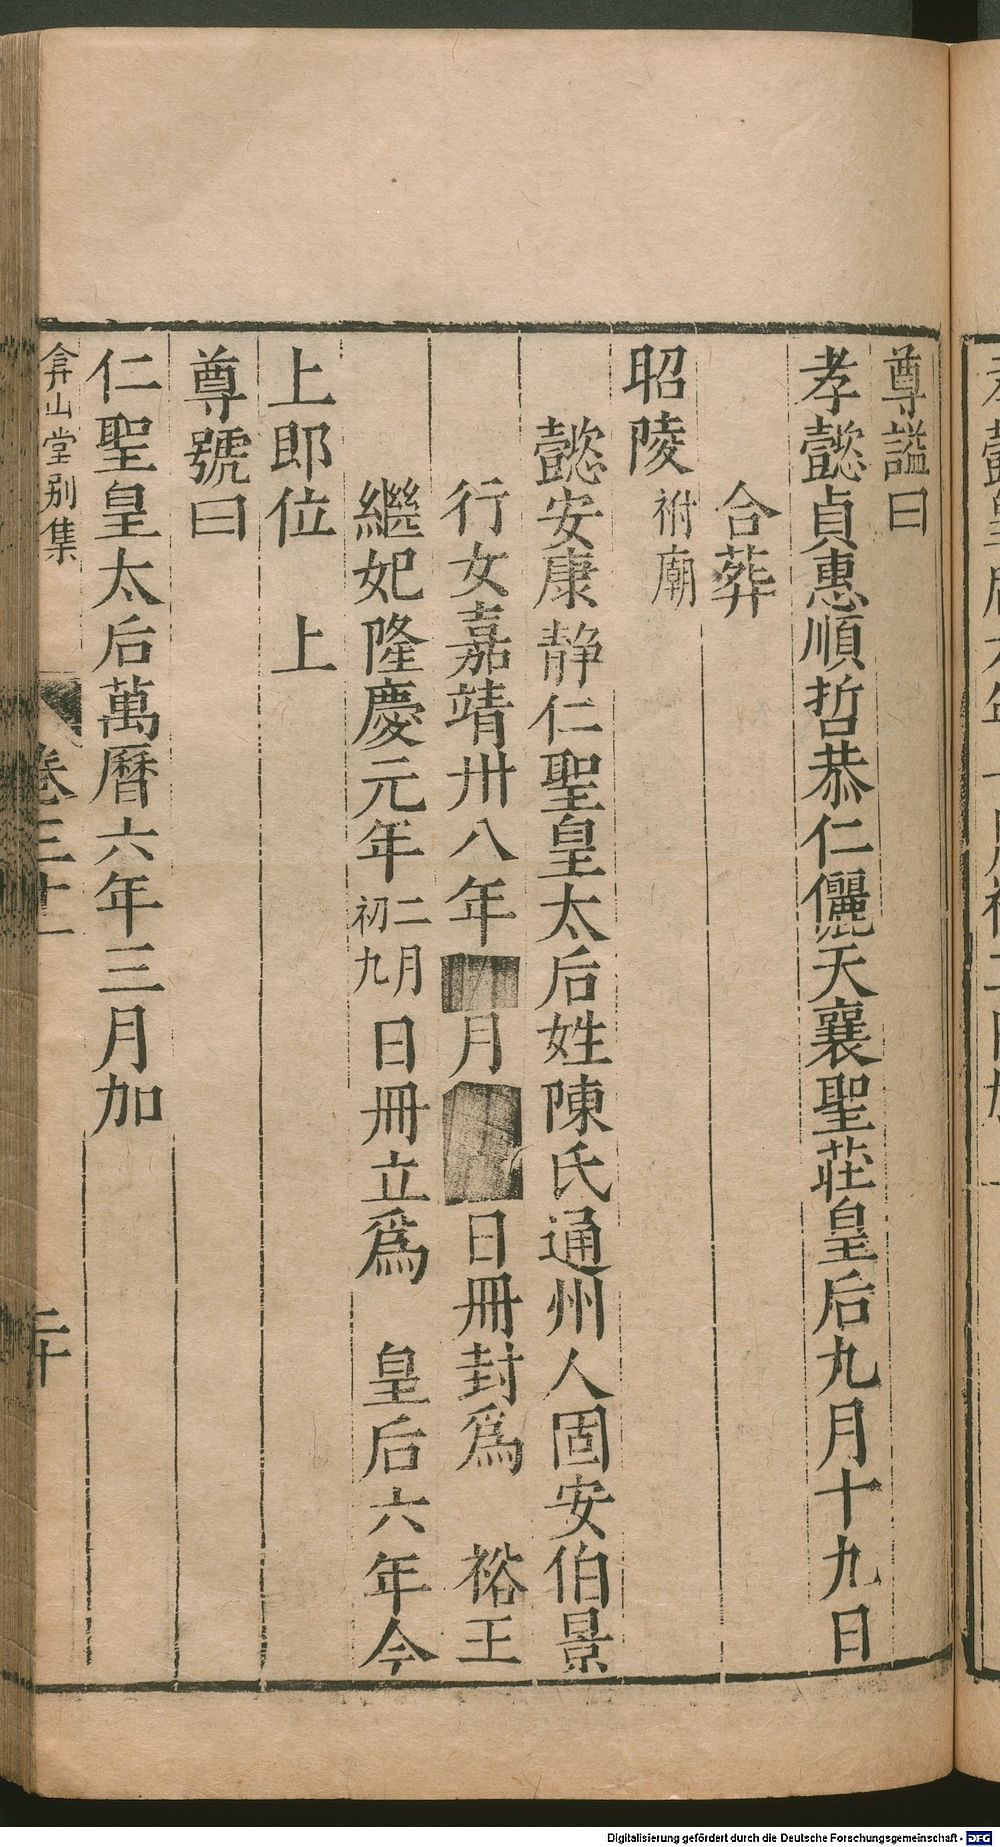 尊謚曰
孝懿貞惠順哲恭仁儷天襄聖莊皇后九月十九日
合葬
昭陵祔廟
懿安康静仁聖皇太后姓陳氏通州人固安伯景
行女嘉靖卅八年月日冊封爲 裕王
繼妃隆慶元年二月初九日冊立爲 皇后六年今
上即位 上
尊號曰
仁聖皇太后萬曆六年三月加
弇山堂别集 卷三十一 二十
Digitalisierung gefördert durch die Deutsche Forschungsgemeinschaft - DFG